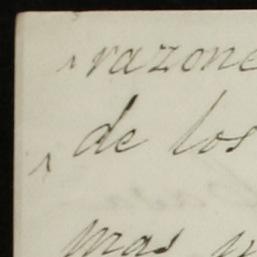 razone
de los
mas